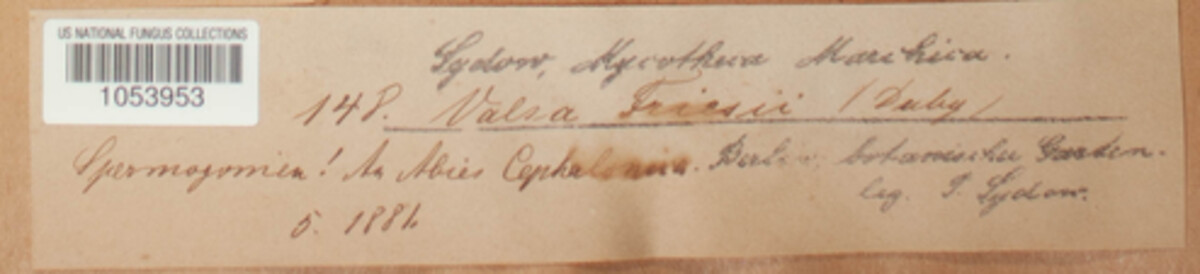 US NATIONAL FUNGUS COLLECTIONS
1053953
Sydow, Mycotheca Marchica.
148. Valsa Friesii (Duby)
Spermogonien! An Abies Cephalonica. Berlin, botanischer Garten.
leg. P. Sydow.
5. 1881.